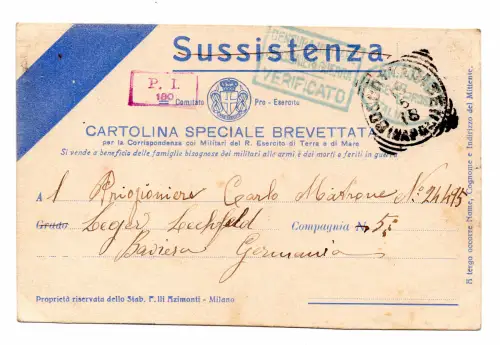 Sussistenza
P. I.
180
VERIFICATO
Comitato Pro - Esercito
CARTOLINA SPECIALE BREVETTATA
per la Corrispondenza coi Militari del R. Esercito di Terra e di Mare
Si vende a beneficio delle famiglie bisognose dei militari alle armi e dei morti o feriti in guerra
A 1 Prigioniere Carlo Matrone No 24475
Grado Leger Lechfeld Compagnia N. 5a
Baviera Germania
Proprietà riservata dello Stab. F.lli Azimonti - Milano
A tergo occorre Nome, Cognome e Indirizzo del Mittente.